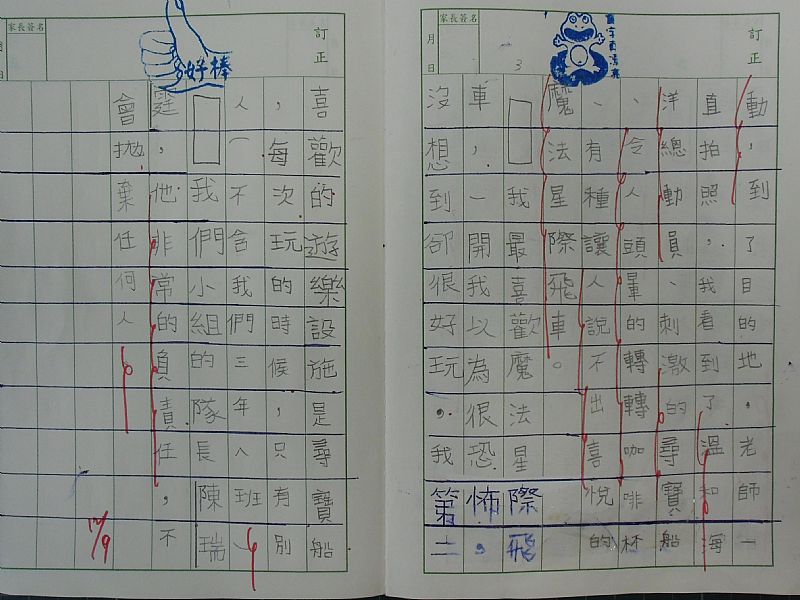 訂正
月 日
家長簽名
動，到了目的地，老師一
直拍照，我看到了溫和海
洋總動員、刺激的尋寶船
、令人頭暈的轉轉咖啡杯
、有種讓人說不出喜悅的
魔法星際飛車。
我最喜歡魔法星際飛
車，一開我以為很恐怖，
沒想到卻很好玩，我第二
訂正
月 日
家長簽名
好棒
喜歡的遊樂設施是尋寶船
，每次玩的時候，只有別
人一不含我們三年八班、
我們小組的隊長陳瑞
霆，他非常的負責任，不
會拋棄任何人。
12/9